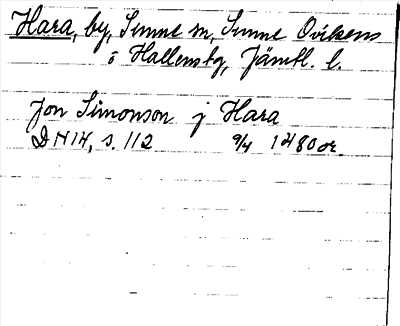 Hara, by, Sunne sn, Sunne Ovikens
o Hallens tg, Jämtl. l.
Jon Simonson j Hara
DN 14, s. 112 9/4 1480 or.